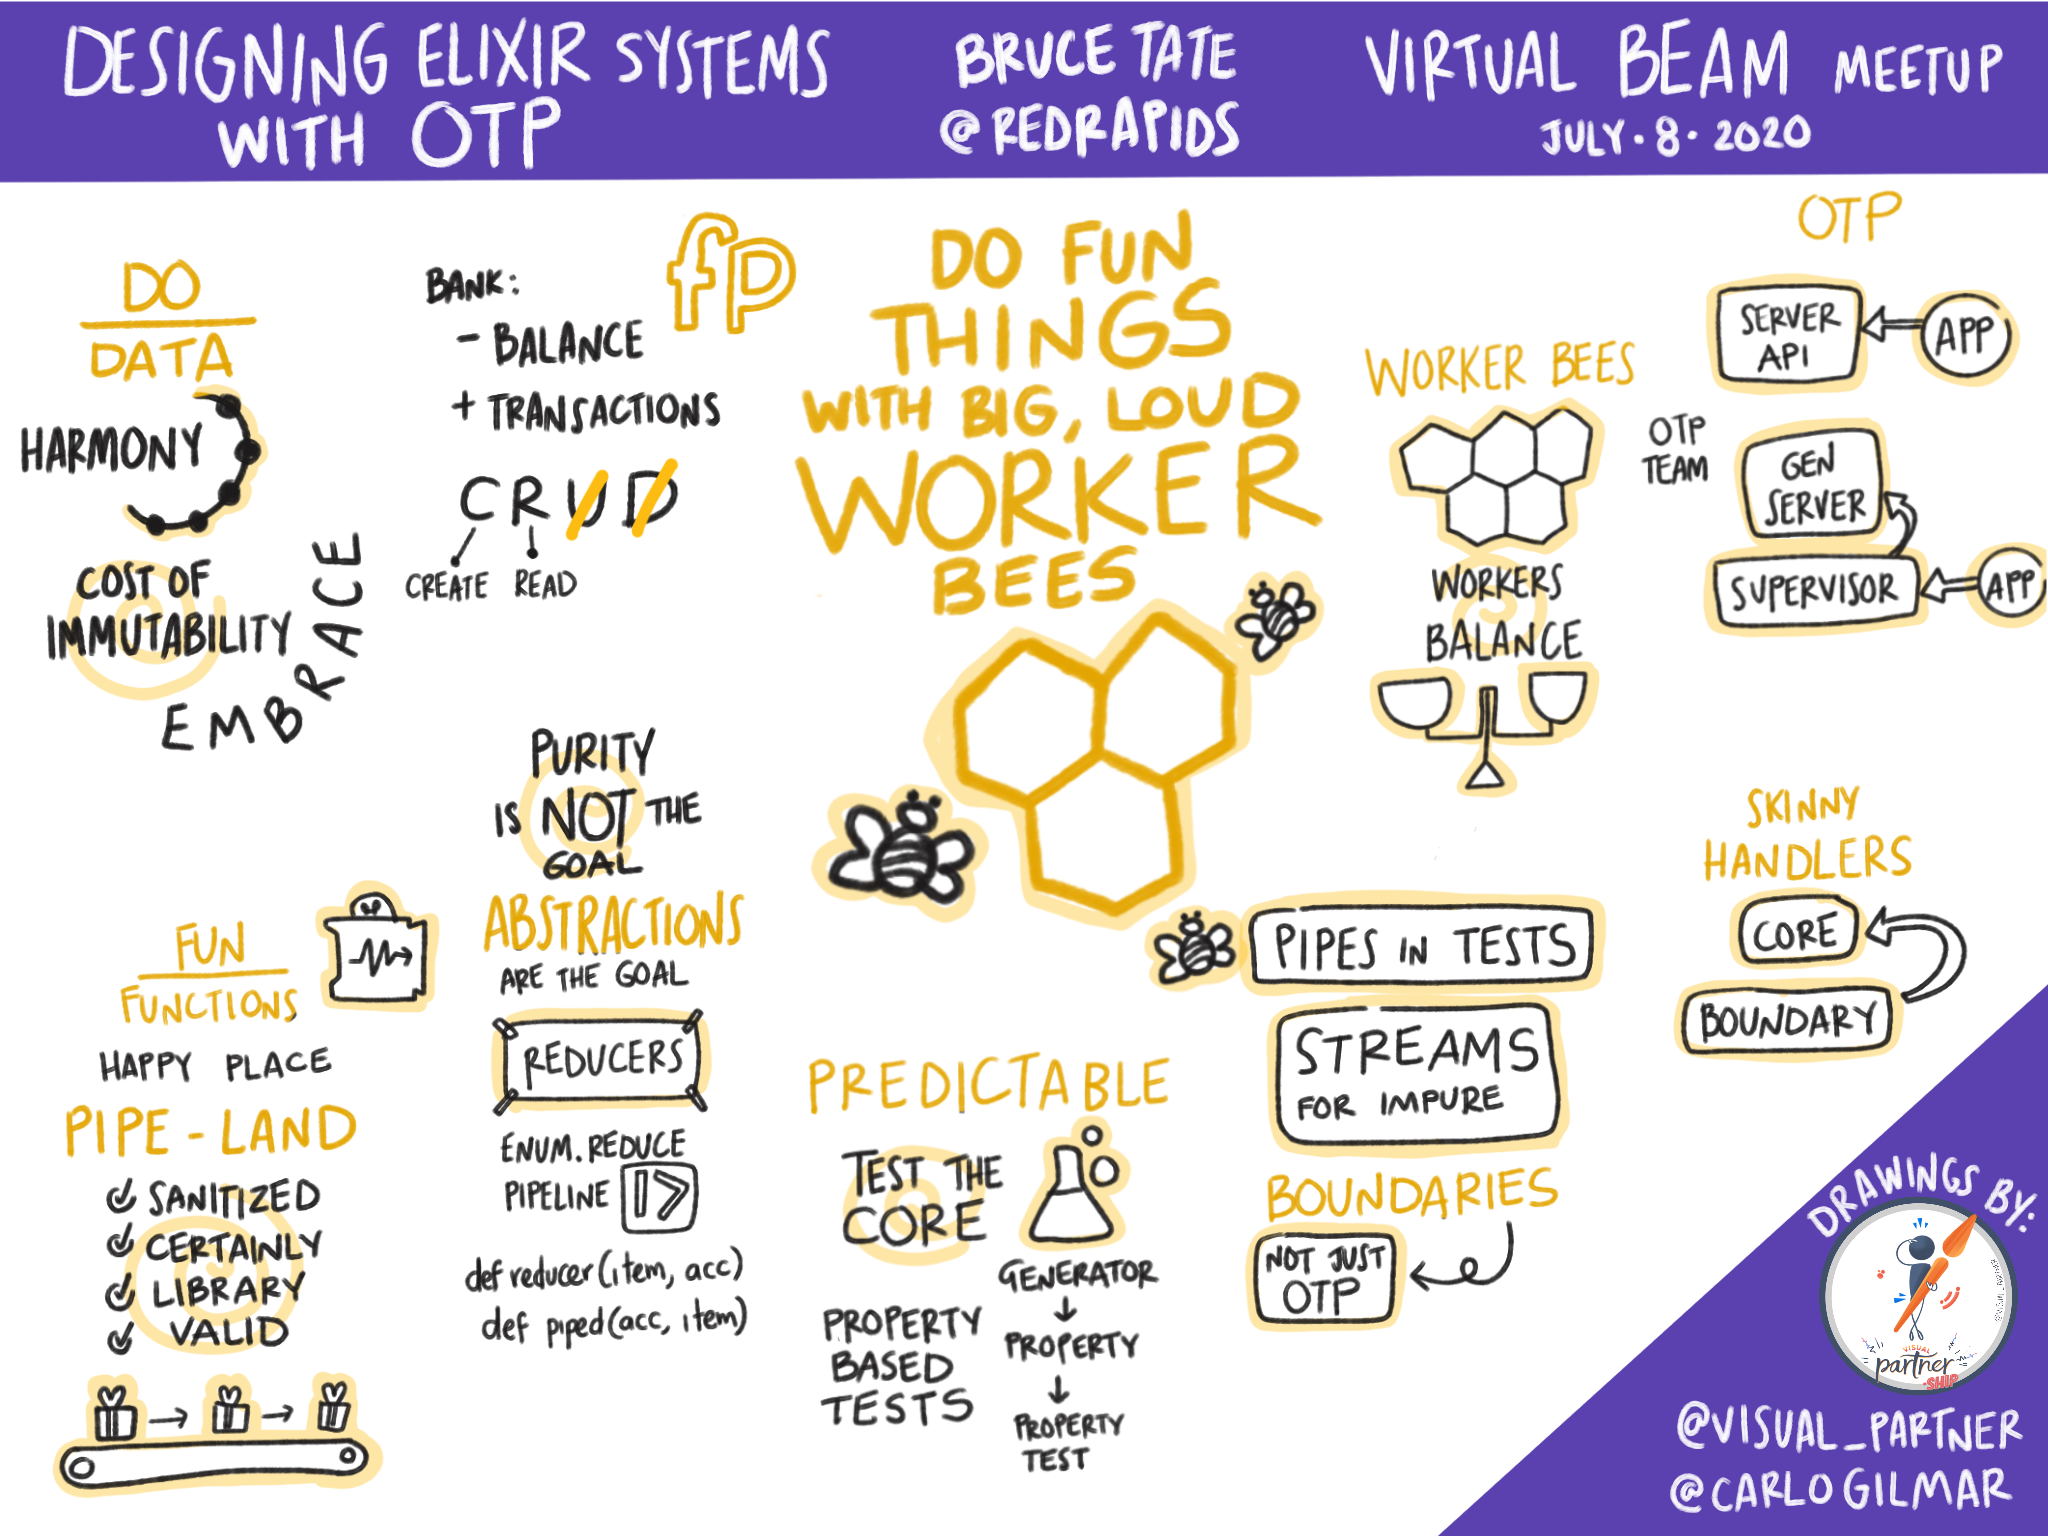 DESIGNING ELIXIR SYSTEMS
WITH OTP
BRUCE TATE
@REDRAPIDS
VIRTUAL BEAM MEETUP
JULY·8·2020
DO
DATA
HARMONY
COST OF
IMMUTABILITY
EMBRACE
BANK:
- BALANCE
+ TRANSACTIONS
fp
CRUD
CREATE READ
FUN
FUNCTIONS
HAPPY PLACE
PIPE-LAND
SANITIZED
CERTAINLY
LIBRARY
VALID
PURITY
IS NOT THE
GOAL
ABSTRACTIONS
ARE THE GOAL
REDUCERS
ENUM.REDUCE
PIPELINE |>
def reducer(item, acc)
def piped(acc, item)
DO FUN
THINGS
WITH BIG, LOUD
WORKER
BEES
PREDICTABLE
TEST THE
CORE
PROPERTY
BASED
TESTS
GENERATOR
PROPERTY
PROPERTY
TEST
WORKER BEES
WORKERS
BALANCE
PIPES IN TESTS
STREAMS
FOR IMPURE
BOUNDARIES
NOT JUST
OTP
OTP
SERVER
API
APP
OTP
TEAM
GEN
SERVER
SUPERVISOR
APP
SKINNY
HANDLERS
CORE
BOUNDARY
DRAWINGS BY:
VISUAL
partner
·SHIP
@VISUAL_PARTNER
@CARLOGILMAR